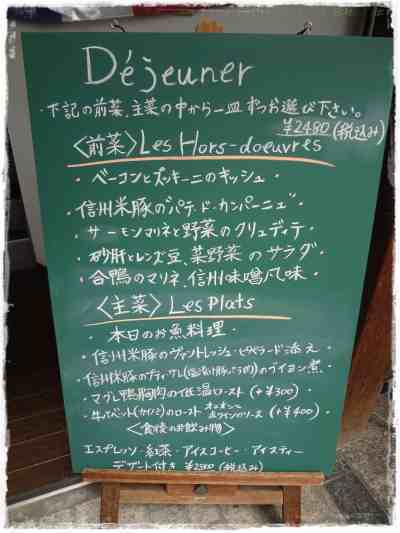 Déjeuner
・下記の前菜、主菜の中から一皿ずつお選び下さい。
¥2480(税込み)
〈前菜〉Les Hors-doeuvres
・ベーコンとズッキーニのキッシュ・
・信州米豚の"パテ・ド・カンパーニュ"
・サーモンマリネと野菜のクリュディテ・
・砂肝とレンズ豆、葉野菜のサラダ・
・合鴨のマリネ、信州味噌風味・
〈主菜〉Les Plats
・本日のお魚料理・
・信州米豚のヴァントレッシュ・ピペラード添え・
・信州米豚のプティサレ(塩漬け豚バラ肉)のブイヨン煮
・マグレ鴨胸肉の低温ロースト(+¥300)・
・牛バベット(カイノミ)のロースト オニオンと赤ワインのソース(+¥400)・
〈食後のお飲み物〉
エスプレッソ・紅茶・アイスコーヒー・アイスティー
デザート付き ¥2980(税込み)